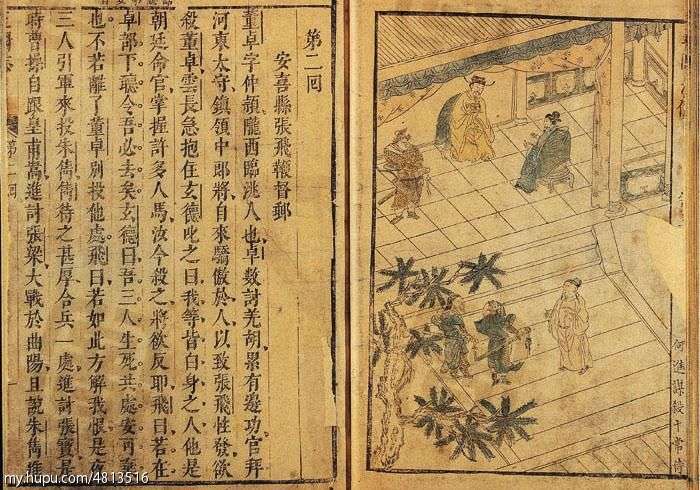 何進謀殺十常侍
第二回
安喜縣張飛鞭督郵
董卓字仲頴隴西臨洮人也卓數討羌胡累有邊功官拜
河東太守鎮領中郎將自來驕傲於人以致張飛性發欲
殺董卓雲長急抱住玄德叱之曰我等皆白身之人他是
朝廷命官掌握許多人馬汝今殺之將欲反耶飛曰若在
卓部下聽令吾必去矣玄德曰吾三人生死共處安可
也不若離了董卓別投他處飛曰若如此方解我恨是
三人引軍來投朱儁儁待之甚厚合兵一處進討張寶是
時曹操自跟皇甫嵩進討張梁大戰於曲陽且說朱儁進
第二回
my.hupu.com/4813516